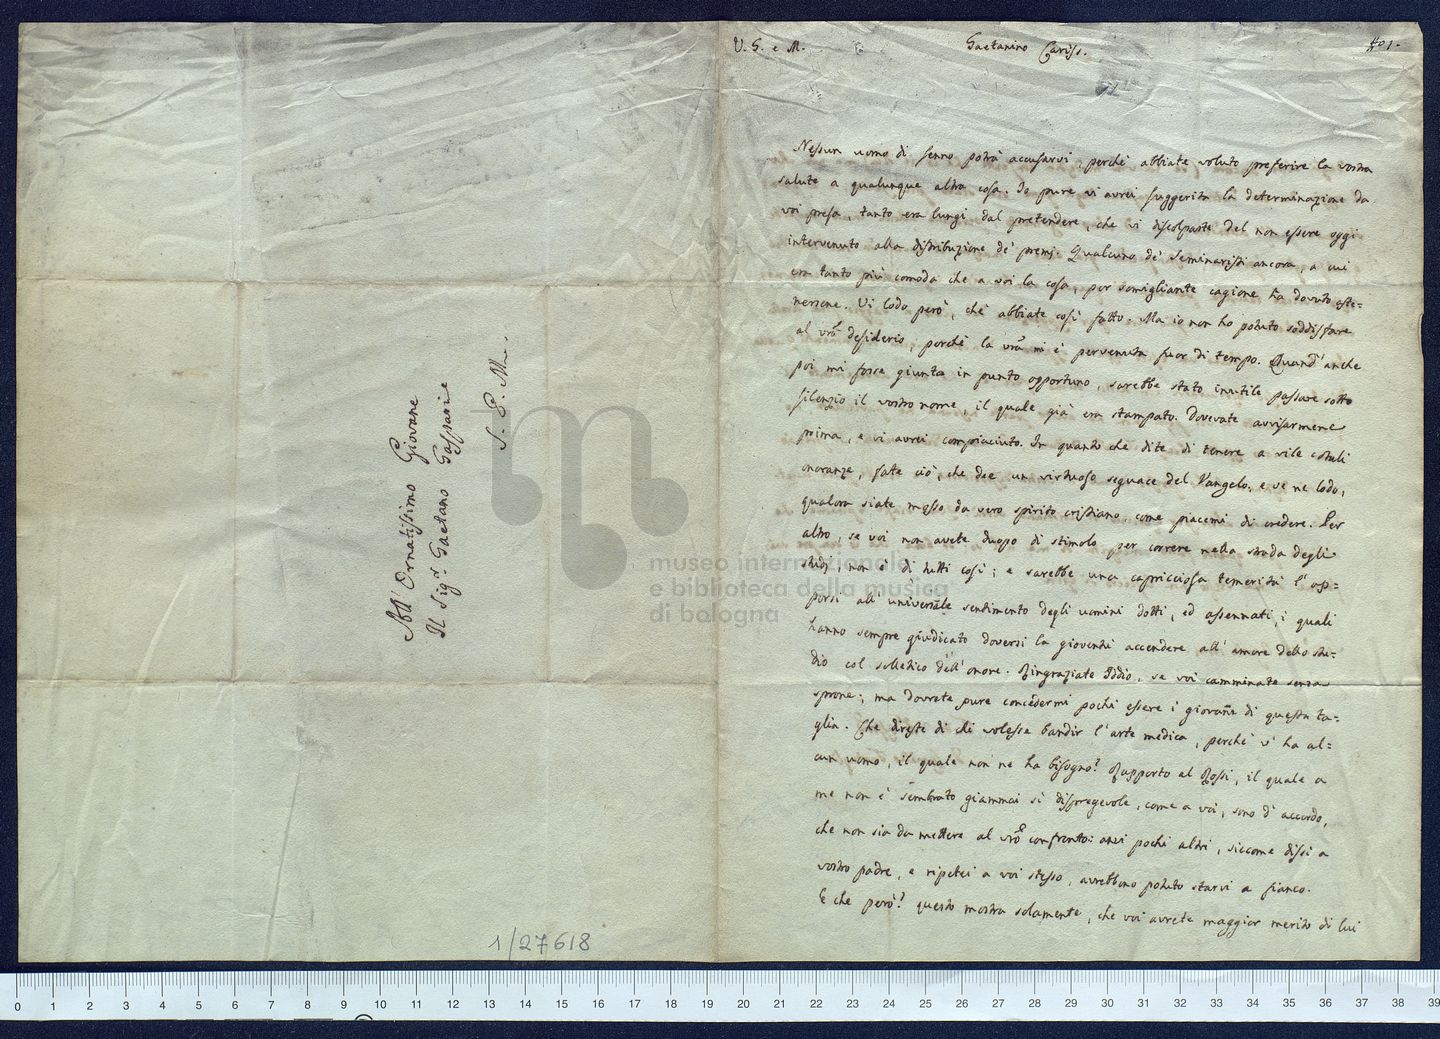 All' Ornatissimo Giovane
Il Sig.r Gaetano Gaspari
S. P. M.
1/27618
V. G. e M.
Gaetanino Cariss.
Nessun uomo di senno potrà accusarvi, perchè abbiate voluto preferire la vostra
salute a qualunque altra cosa. Io pure vi avrei suggerita la determinazione da
voi presa, tanto era lungi dal pretendere, che vi discolpaste del non essere oggi
intervenuto alla distribuzione de' premj. Qualcuno de' Seminaristi ancora, a cui
era tanto più comoda che a voi la cosa, per somigliante cagione ha dovuto aste=
nersene. Vi lodo però, che abbiate così fatto. Ma io non ho potuto soddisfare
al vro desiderio, perchè la vra mi è pervenuta fuor di tempo. Quand' anche
poi mi fosse giunta in punto opportuno, sarebbe stato inutile passare sotto
silenzio il vostro nome, il quale già era stampato. Dovevate avvisarmene
prima, e vi avrei compiaciuto. In quanto che dite di tenere a vile cotali
onoranze, fate ciò, che dee un virtuoso seguace del Vangelo, e ve ne lodo,
qualora siate mosso da vero spirito cristiano, come piacemi di credere. Per
altro, se voi non avete duopo di stimolo per correre nella strada degli
studj non è di tutti così; e sarebbe una capricciosa temerità l' op=
porsi all' universale sentimento degli uomini dotti, ed assennati, i quali
hanno sempre giudicato doversi la gioventù accendere all' amore dello stu=
dio col solletico dell' onore. Ringraziate Iddio, se voi camminate senza
sprone; ma dovrete pure concedermi pochi essere i giovani di questa ta=
glia. Che direste di chi volesse bandir l' arte medica, perchè v' ha al=
cun uomo, il quale non ne ha bisogno? Rapporto al Rossi, il quale a
me non è sembrato giammai sì dispregevole, come a voi, sono d' accordo,
che non sia da mettere al vro confronto: anzi pochi altri, siccome dissi a
vostro padre, e ripetei a voi stesso, avrebbono potuto starvi a fianco.
E che però? questo mostra solamente, che voi avrete maggior merito di lui
museo internazionale
e biblioteca della musica
di bologna
0 1 2 3 4 5 6 7 8 9 10 11 12 13 14 15 16 17 18 19 20 21 22 23 24 25 26 27 28 29 30 31 32 33 34 35 36 37 38 39